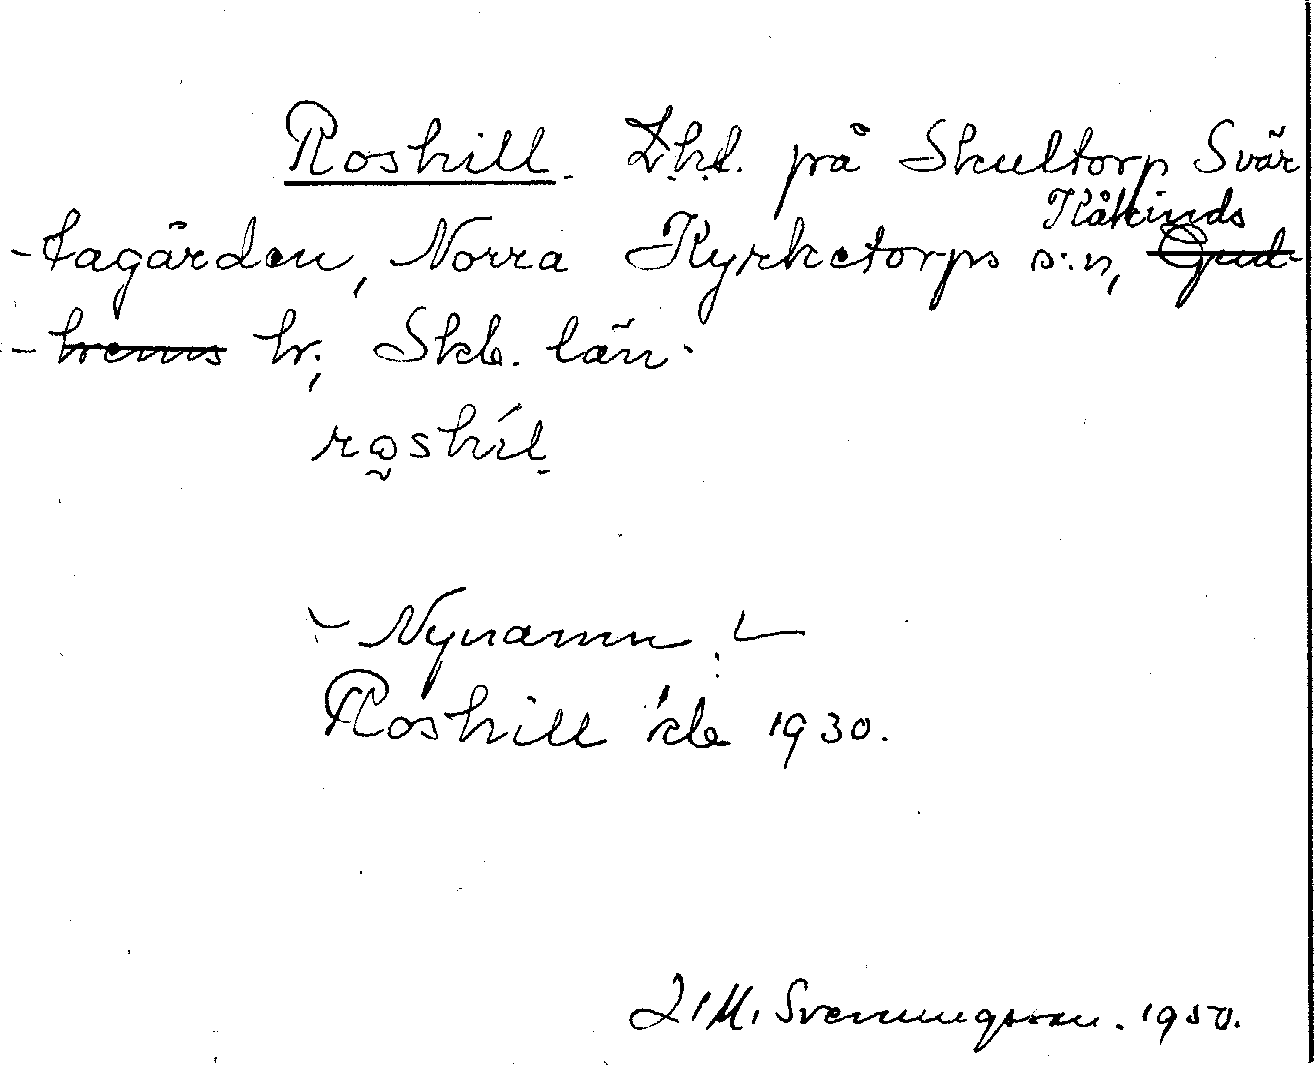 Roshill. Lht. på Skultorp Svär
-tagården, Norra Kyrketorps s:n, Kåkinds ~~Gud-~~
- ~~hems~~ hr; Skb. län.
roshíl
- Nynamn! -
Roshill kb 1930.
Svenningsson. 1950.